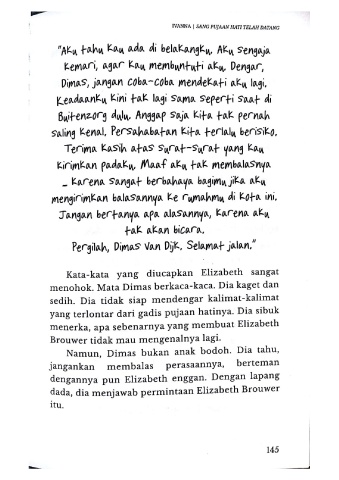 IVANNA | SANG PUJAAN HATI TELAH DATANG
"Aku tahu kau ada di belakangku. Aku sengaja
kemari, agar kau membuntuti aku. Dengar,
Dimas, jangan coba-coba mendekati aku lagi.
Keadaanku kini tak lagi sama seperti saat di
Buitenzorg dulu. Anggap saja kita tak pernah
saling kenal. Persahabatan kita terlalu berisiko.
Terima kasih atas surat-surat yang kau
kirimkan padaku. Maaf aku tak membalasnya
_ karena sangat berbahaya bagimu jika aku
mengirimkan balasannya ke rumahmu di kota ini.
Jangan bertanya apa alasannya, karena aku
tak akan bicara.
Pergilah, Dimas Van Dijk. Selamat jalan."
Kata-kata yang diucapkan Elizabeth sangat
menohok. Mata Dimas berkaca-kaca. Dia kaget dan
sedih. Dia tidak siap mendengar kalimat-kalimat
yang terlontar dari gadis pujaan hatinya. Dia sibuk
menerka, apa sebenarnya yang membuat Elizabeth
Brouwer tidak mau mengenalnya lagi.
Namun, Dimas bukan anak bodoh. Dia tahu,
jangankan membalas perasaannya, berteman
dengannya pun Elizabeth enggan. Dengan lapang
dada, dia menjawab permintaan Elizabeth Brouwer
itu.
145